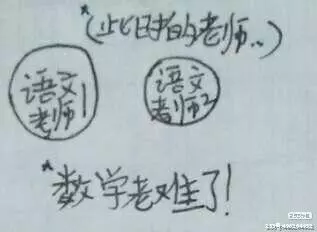 *(此时的老师..)
语文
老师1
语文
老师2
*数学老难了!